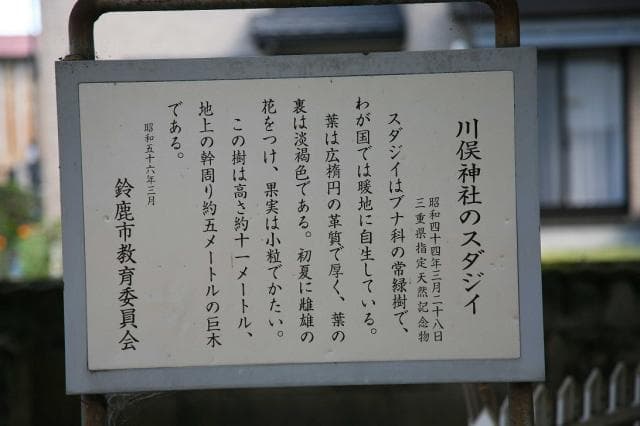 川俣神社のスダジイ
昭和四十四年三月二十八日
三重県指定天然記念物
スダジイはブナ科の常緑樹で、
わが国では暖地に自生している。
葉は広楕円の革質で厚く、葉の
裏は淡褐色である。初夏に雌雄の
花をつけ、果実は小粒でかたい。
この樹は高さ約十一メートル、
地上の幹周り約五メートルの巨木
である。
昭和五十六年三月
鈴鹿市教育委員会